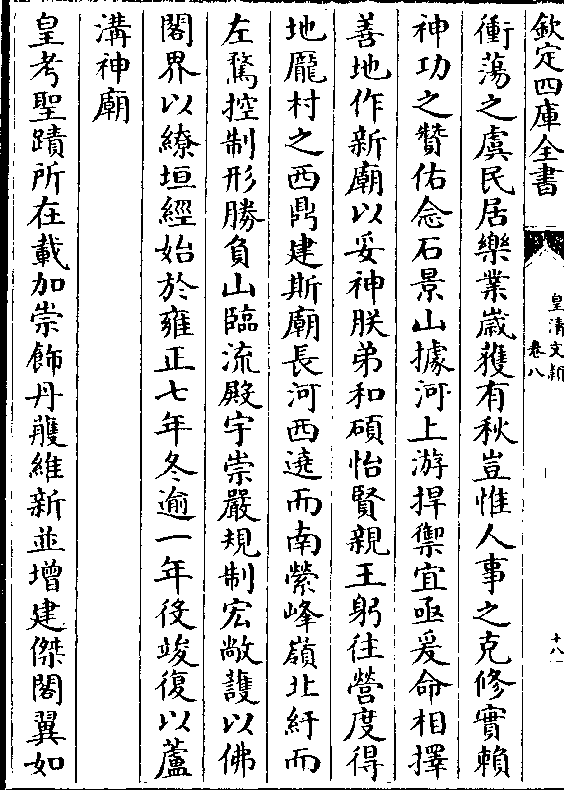 欽定四庫全書
皇清文穎
卷八
十八
衝蕩之虞民居樂業嵗穫有秋豈惟人事之克修實賴
神功之贊佑念石景山據河上游捍禦宜亟爰命相擇
善地作新廟以妥神朕弟和碩怡賢親王躬往營度得
地龎村之西鼎建斯廟長河西遶而南縈峰嶺北紆而
左騖控制形勝負山臨流殿宇崇嚴規制宏敞䕶以佛
閣界以繚垣經始於雍正七年冬逾一年役竣復以蘆
溝神廟
皇考聖蹟所在載加崇飾丹雘維新並增建傑閣翼如